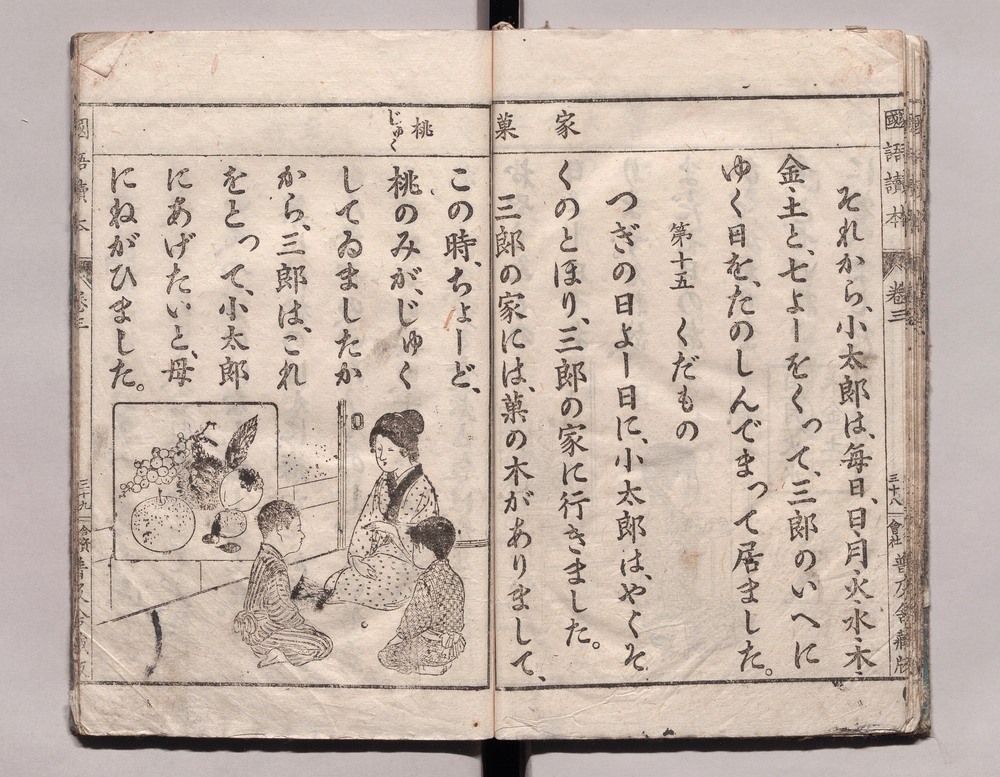 國語讀本 卷三 三十八 會社 普及舍藏版
家
菓
それから、小太郎は、每日、日・月・火・水・木・
金・土と、七よーをくって、三郎のいへに
ゆく日を、たのしんでまって居ました。
第十五 くだもの
つぎの日よー日に、小太郎は、やくそ
くのとほり、三郎の家に行きました。
三郎の家には、菓の木がありまして、
桃
じゅく
この時、ちょーど、
桃のみが、じゅく
してゐましたか
ら、三郎は、これ
をとって、小太郎
にあげたいと、母
にねがひました。
國語讀本 卷三 三十九